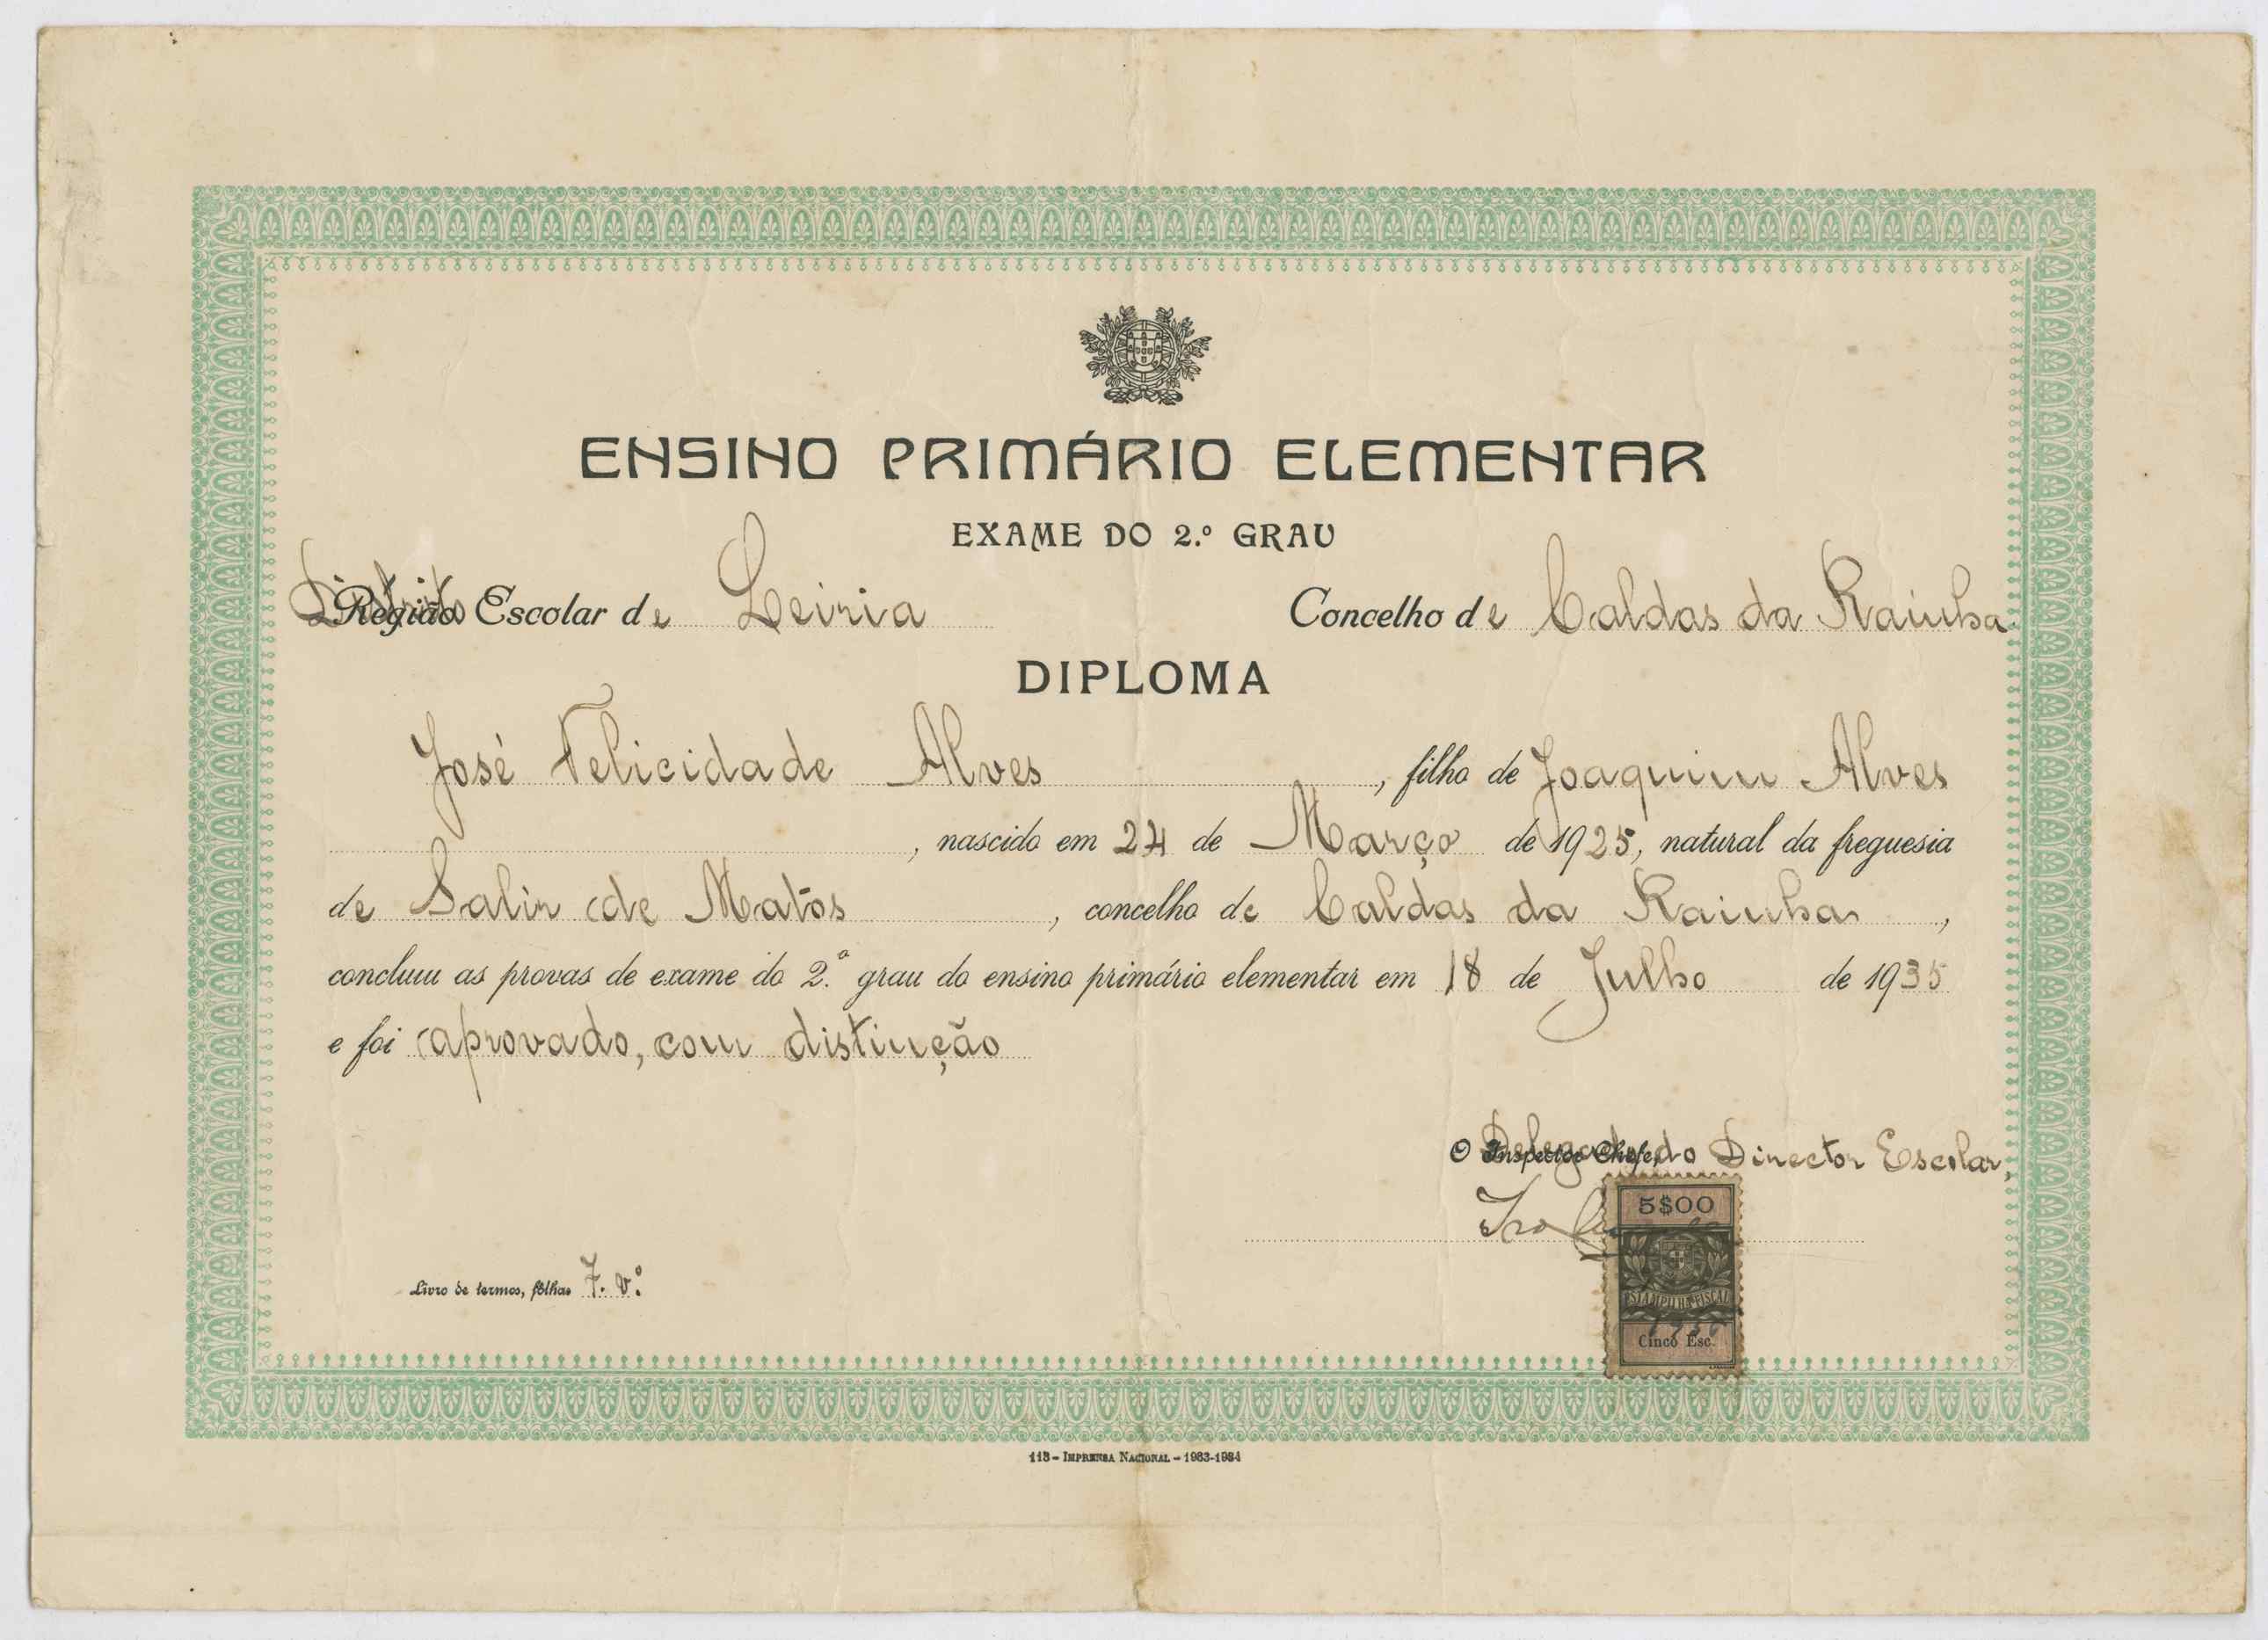 ENSINO PRIMÁRIO ELEMENTAR
EXAME DO 2.º GRAU
Distrito Escolar de Leiria Concelho de Caldas da Rainha
DIPLOMA
José Felicidade Alves, filho de Joaquim Alves
, nascido em 24 de Março de 1925, natural da freguesia
de Salir de Matos, concelho de Caldas da Rainha,
concluiu as provas de exame do 2.º grau do ensino primário elementar em 18 de Julho de 1935
e foi aprovado, com distinção
O Delegado do Director Escolar,
5$00
ESTAMPILHA FISCAL
Cinco Esc.
Livro de termos, fôlhas 7. v.º
113 - IMPRENSA NACIONAL - 1933-1934